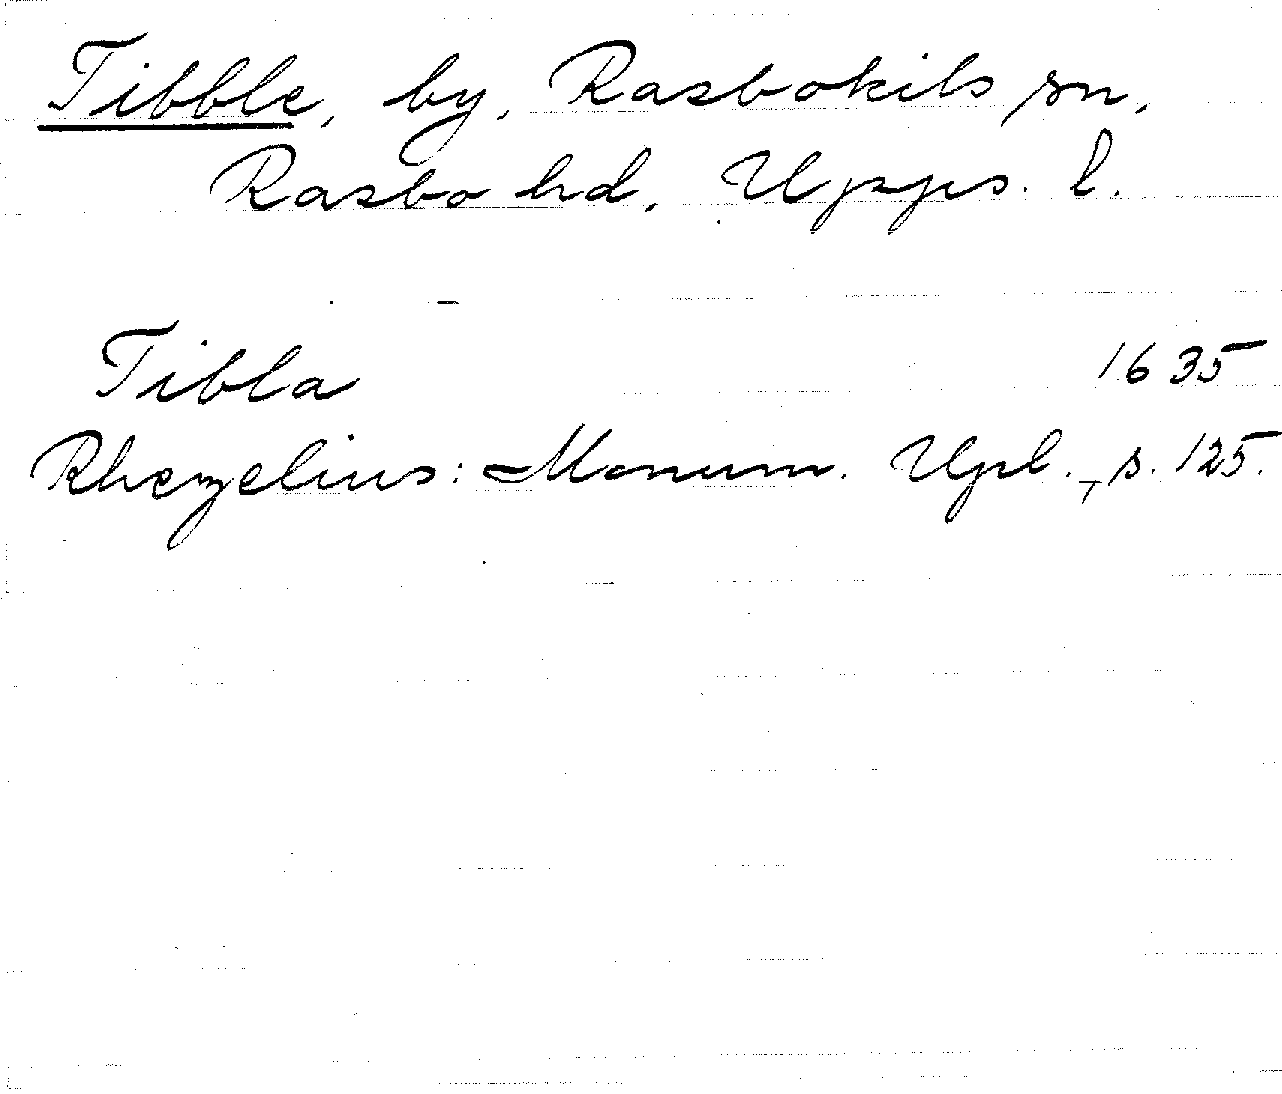 Tibble, by, Rasbokils sn,
Rasbo hd, Upps. l.
Tibla 1635
Rhezelius: Monum. Upl., s. 125.